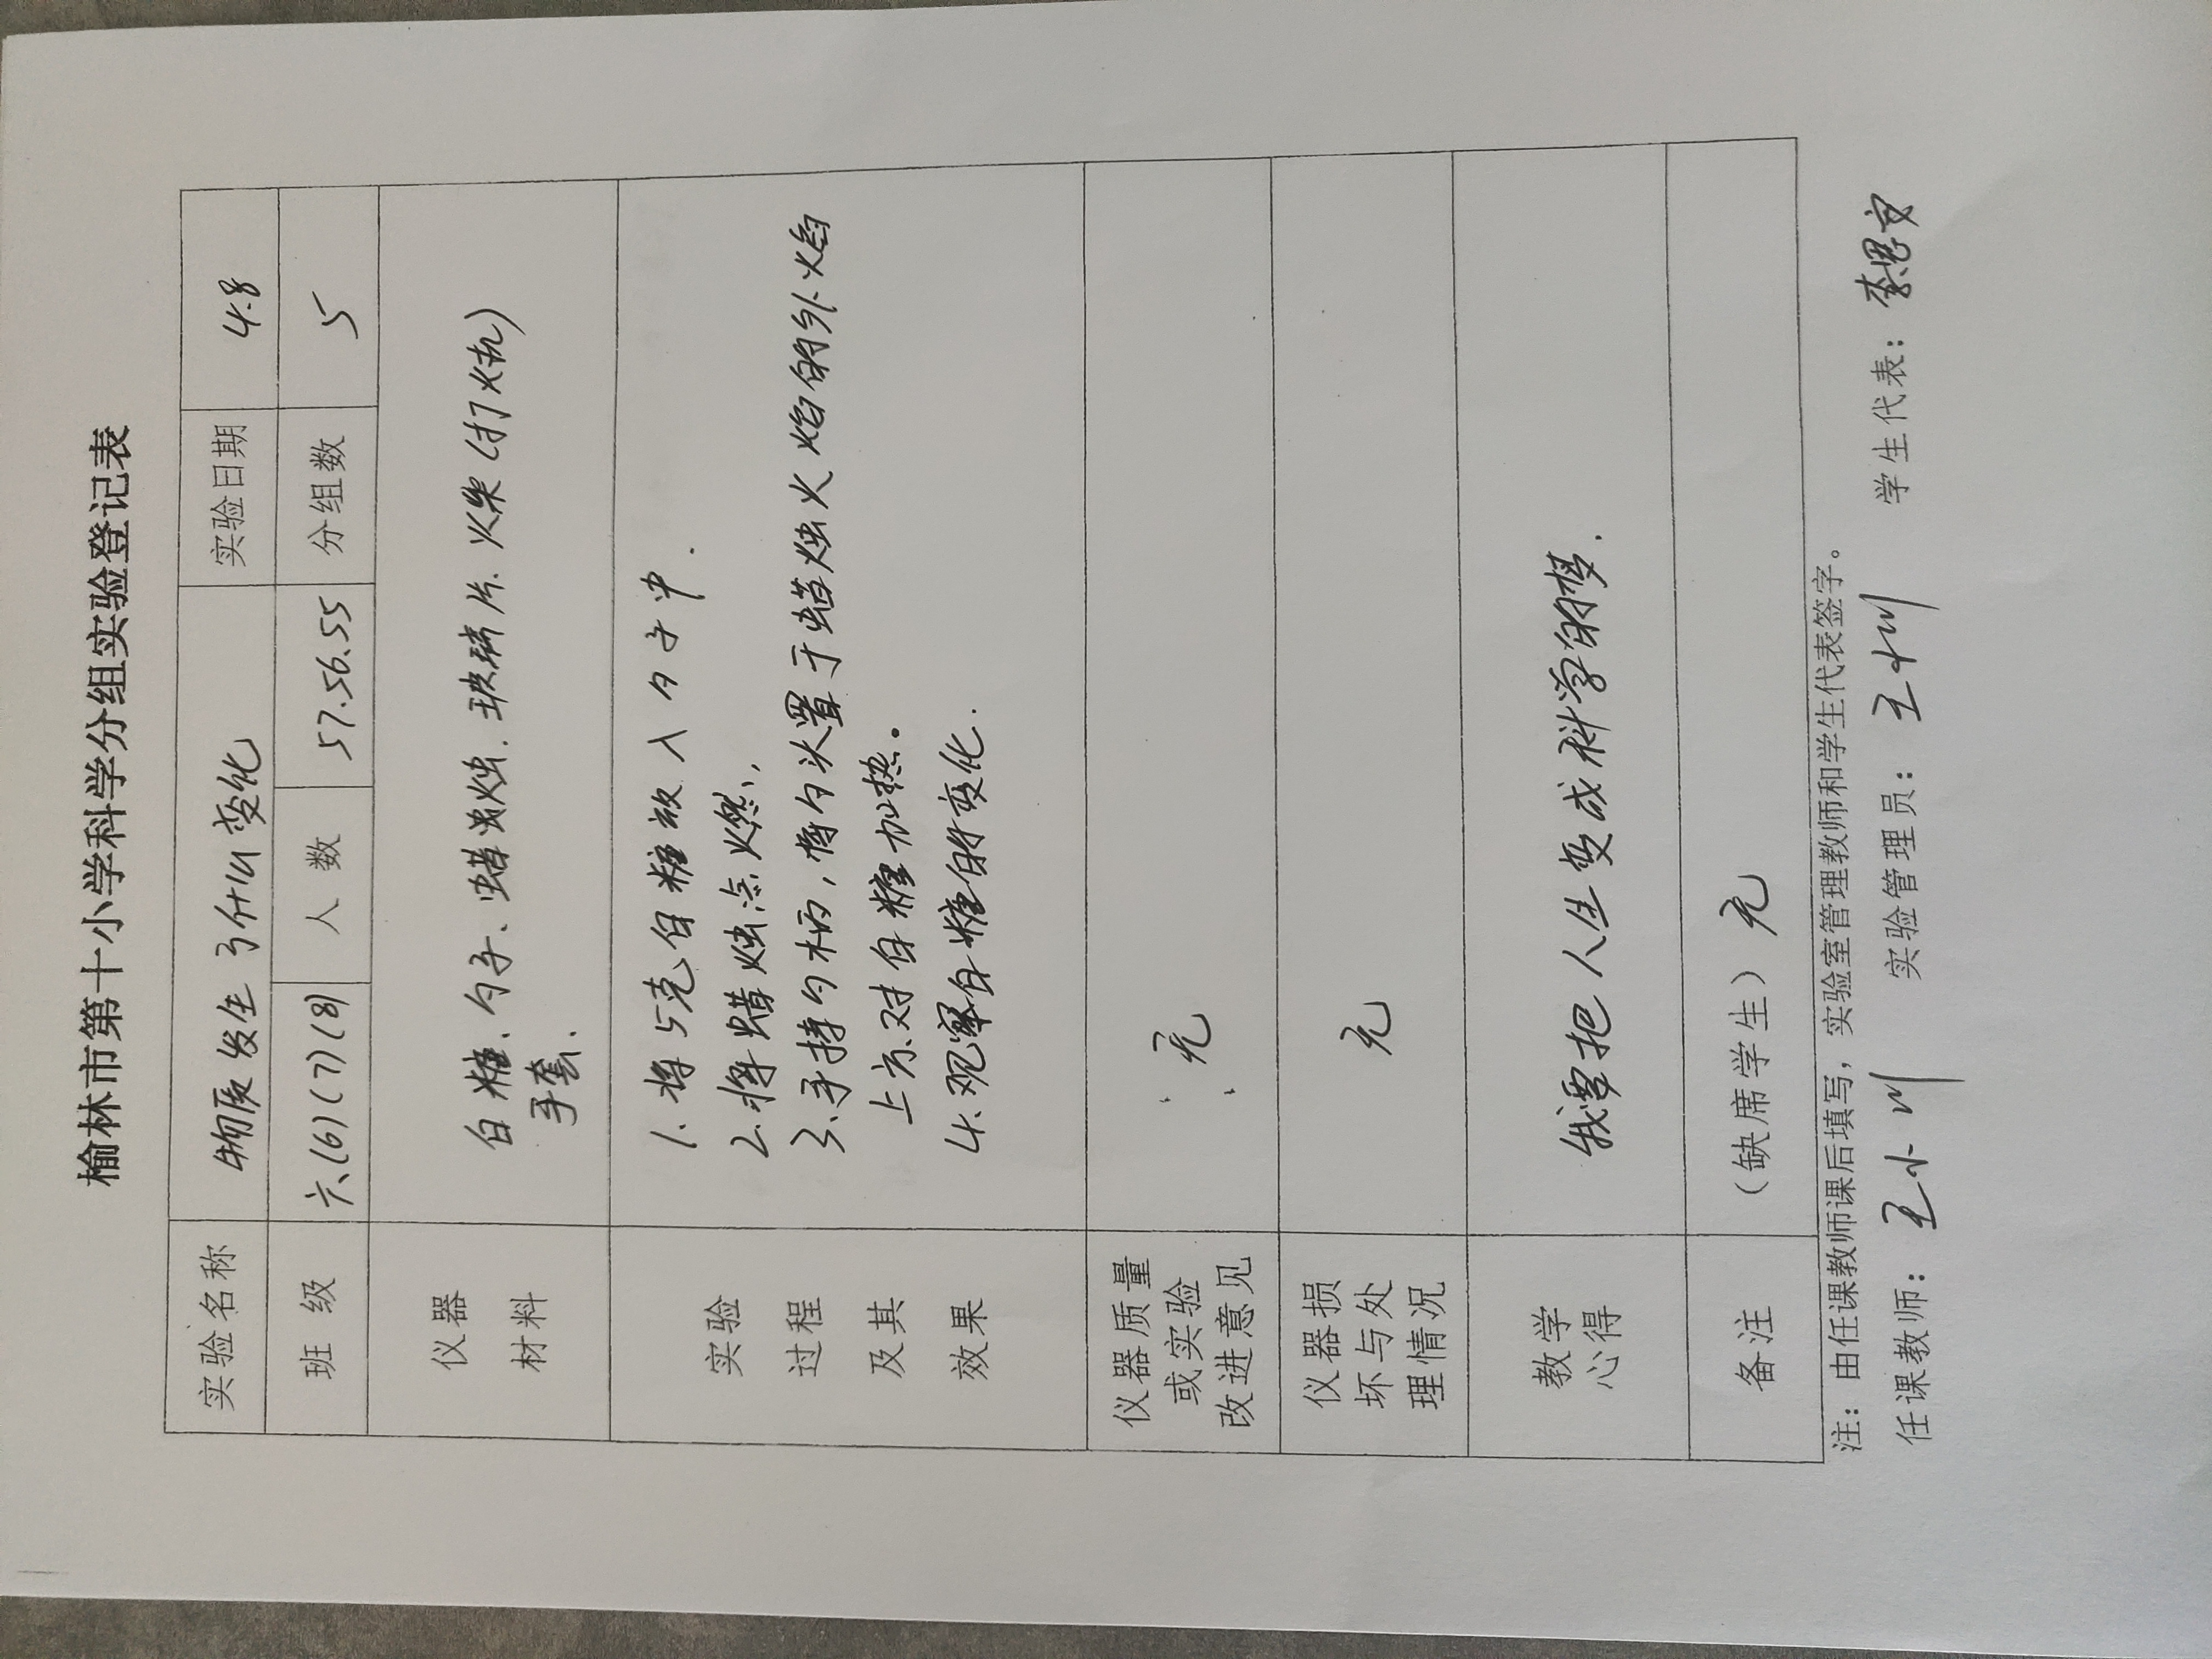 榆林市第十小学科学分组实验登记表
实验名称 物质发生了什么变化 实验日期 4.8
班 级 六(6)(7)(8) 人 数 57.56.55 分组数 5
仪器 材料
白糖、勺子、蜡烛、玻璃片、火柴(打火机)
手套.
实验 过程 及其 效果
1. 将5克白糖放入勺子中.
2. 将蜡烛点燃,
3. 手持勺柄,将勺头置于蜡烛火焰的外焰
上方.对白糖加热。
4. 观察白糖的变化.
仪器质量
或实验
改进意见
无
仪器损
坏与处
理情况
无
教学
心得
我要把人生变成科学的梦.
备注 (缺席学生) 无
注：由任课教师课后填写，实验室管理教师和学生代表签字。
任课教师：王小川 实验管理员：王小川 学生代表：